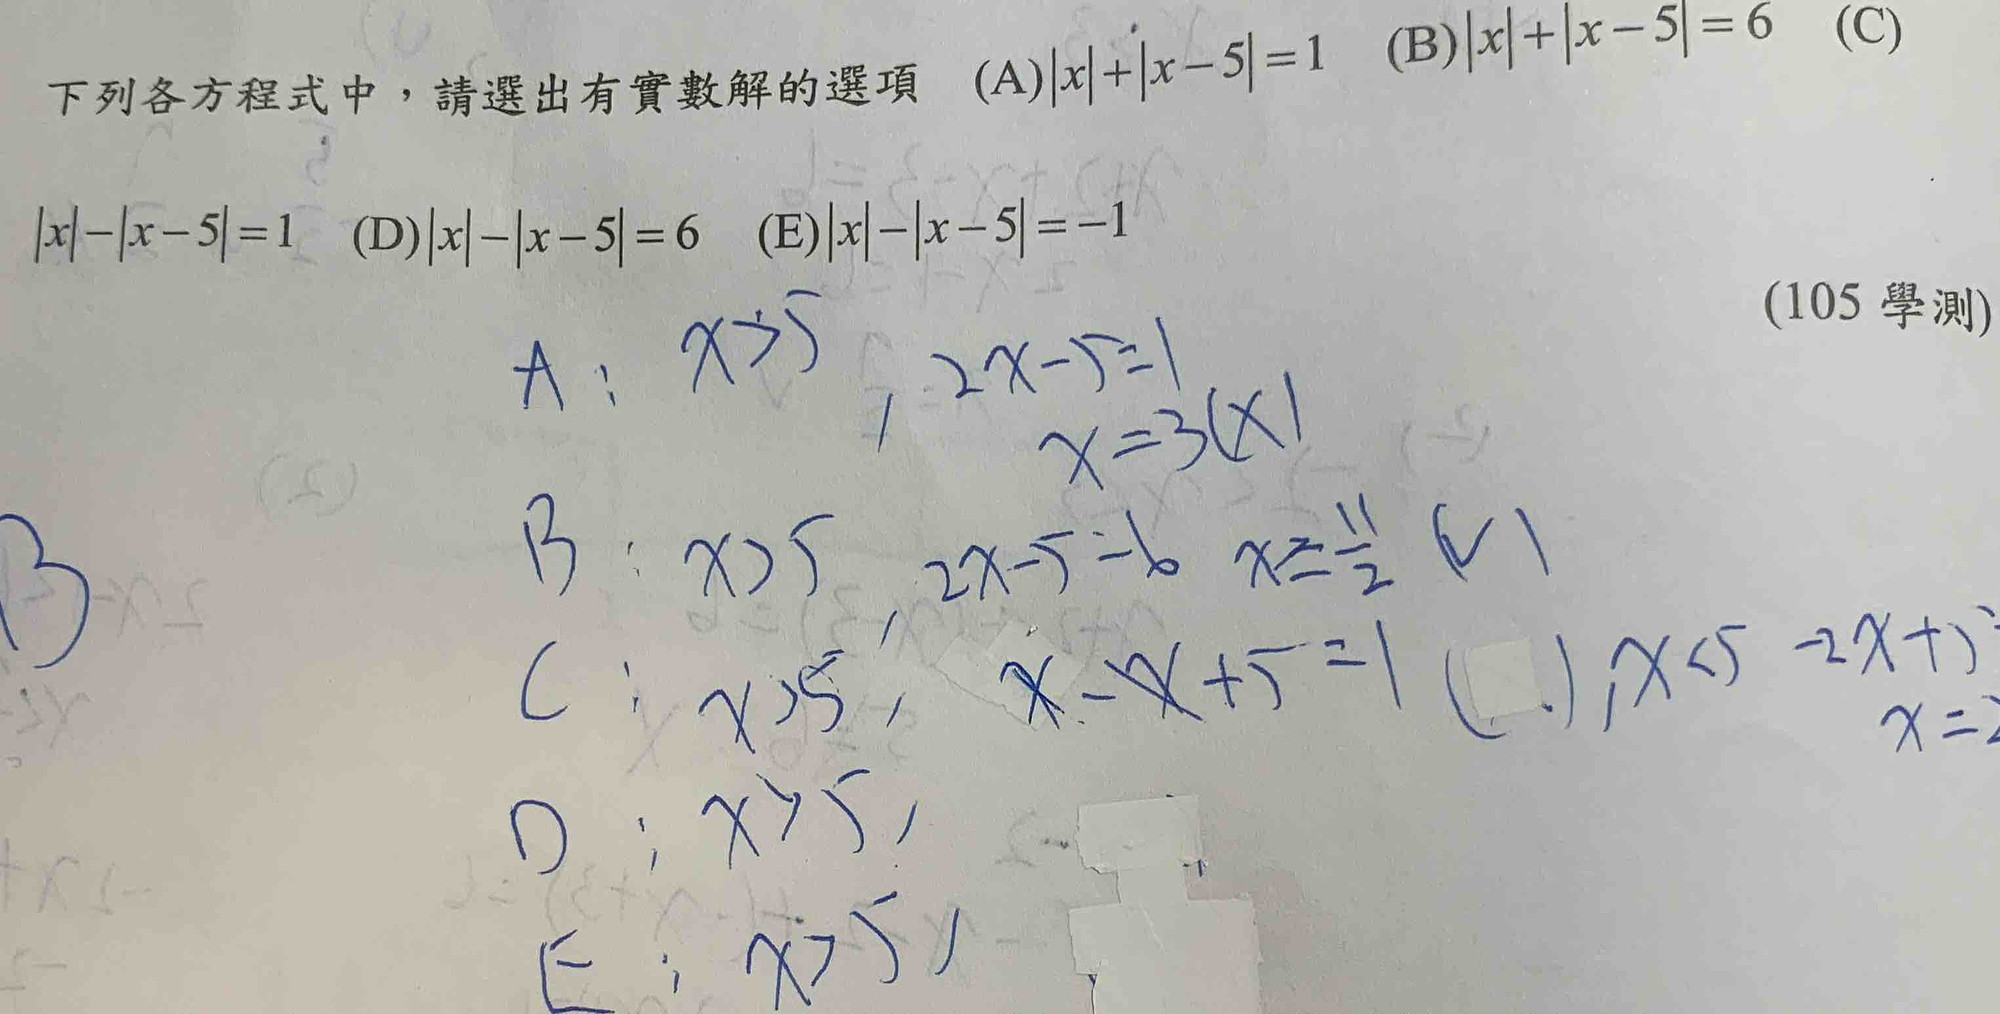 下列各方程式中，請選出有實數解的選項 (A)|x|+|x-5|=1 (B)|x|+|x-5|=6 (C)
|x|-|x-5|=1 (D)|x|-|x-5|=6 (E)|x|-|x-5|=-1
(105 學測)
A: x>5, 2x-5=1
x=3(x)
B
B: x>5, 2x-5=6 x=11/2 (✓)
C: x>5, x-x+5=1 ( ), x<5 -2x+5
x=
D: x>5,
E: x>5,